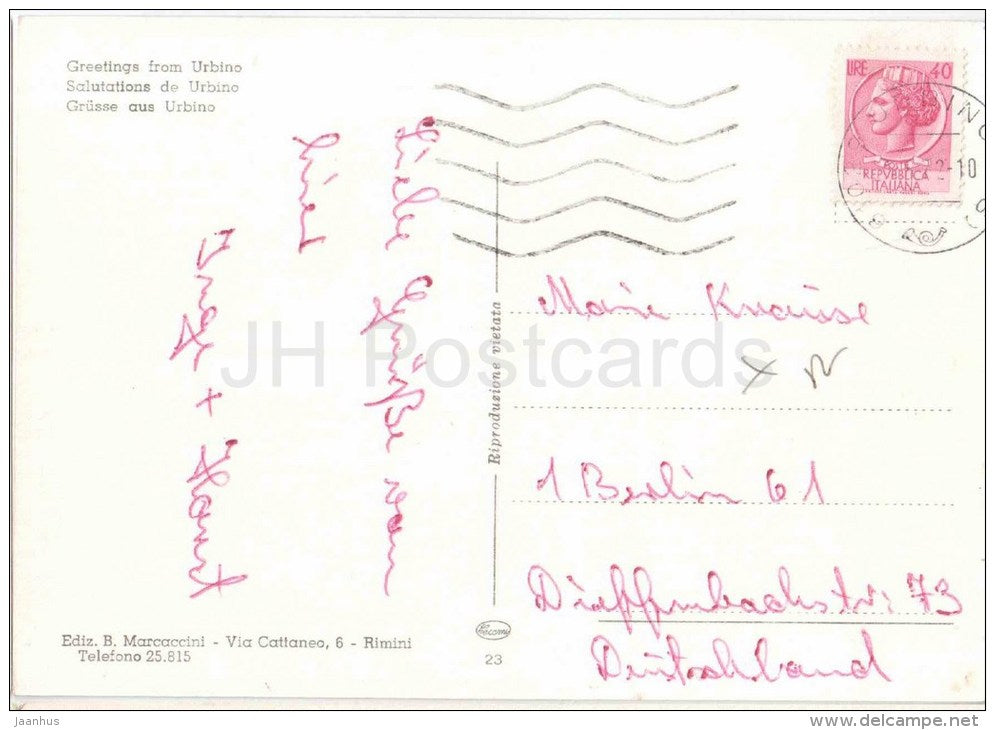 Greetings from Urbino
Salutations de Urbino
Grüsse aus Urbino
LIRE 40
POSTE
REPVBBLICA
ITALIANA
-10
Viele Grüße von
Inge + Horst
Riproduzione vietata
Marie Krause
1 Berlin 61
Dieffenbachstr. 73
Deutschland
JH Postcards
Ediz. B. Marcaccini - Via Cattaneo, 6 - Rimini
Telefono 25.815
23
jaanhus
www.delcampe.net